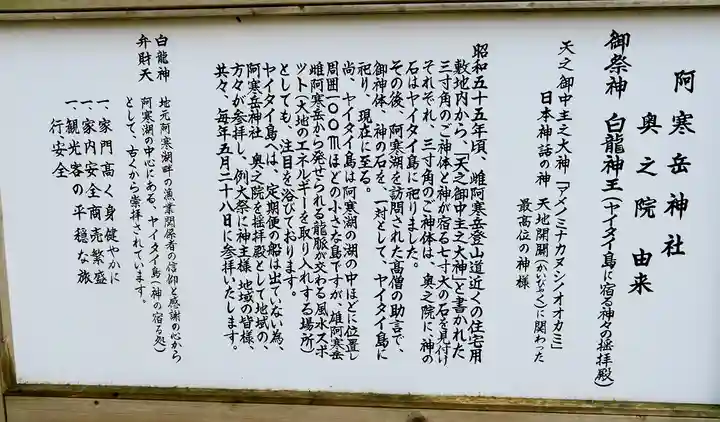 阿寒岳神社
奥之院 由来
御祭神 白龍神王(ヤイタイ島に宿る神々の揺拝殿)
天之御中主之大神「アメノミナカヌシノオオカミ」
日本神話の神 天地開闢(かいびゃく)に関わった
最高位の神様
昭和五十五年頃、雌阿寒岳登山道近くの住宅用
敷地内から、「天之御中主之大神」と書かれた
三寸角のご神体と神が宿る七寸大の石を見付け
それぞれ、三寸角のご神体は、奥之院に、神の
石はヤイタイ島に祀りました。
その後、阿寒湖を訪問された高僧の助言で、
御神体、神の石を、一対として、ヤイタイ島に
祀り、現在に至る。
尚、ヤイタイ島は阿寒湖の湖の中ほどに位置し
周囲一〇〇mほどの小さな島ですが、雄阿寒岳
雌阿寒岳から発せられる龍脈が交わる風水スポ
ット(大地のエネルギーを取り入れする場所)
としても、注目を浴びております。
ヤイタイ島へは、定期便の船は出ていない為、
阿寒岳神社 奥之院を揺拝殿として地域の、
方々が参拝し、例大祭に神主様、地域の皆様、
共々、毎年五月二十八日に参拝いたします。
白龍神 地元阿寒湖畔の漁業関係者の信仰と感謝の心から
弁財天 阿寒湖の中心にある、ヤイタイ島(神の宿る処)
として、古くから崇拝されています。
一、家門高く身健やかに
一、家内安全商売繁盛
一、観光客の平穏な旅
行、安全